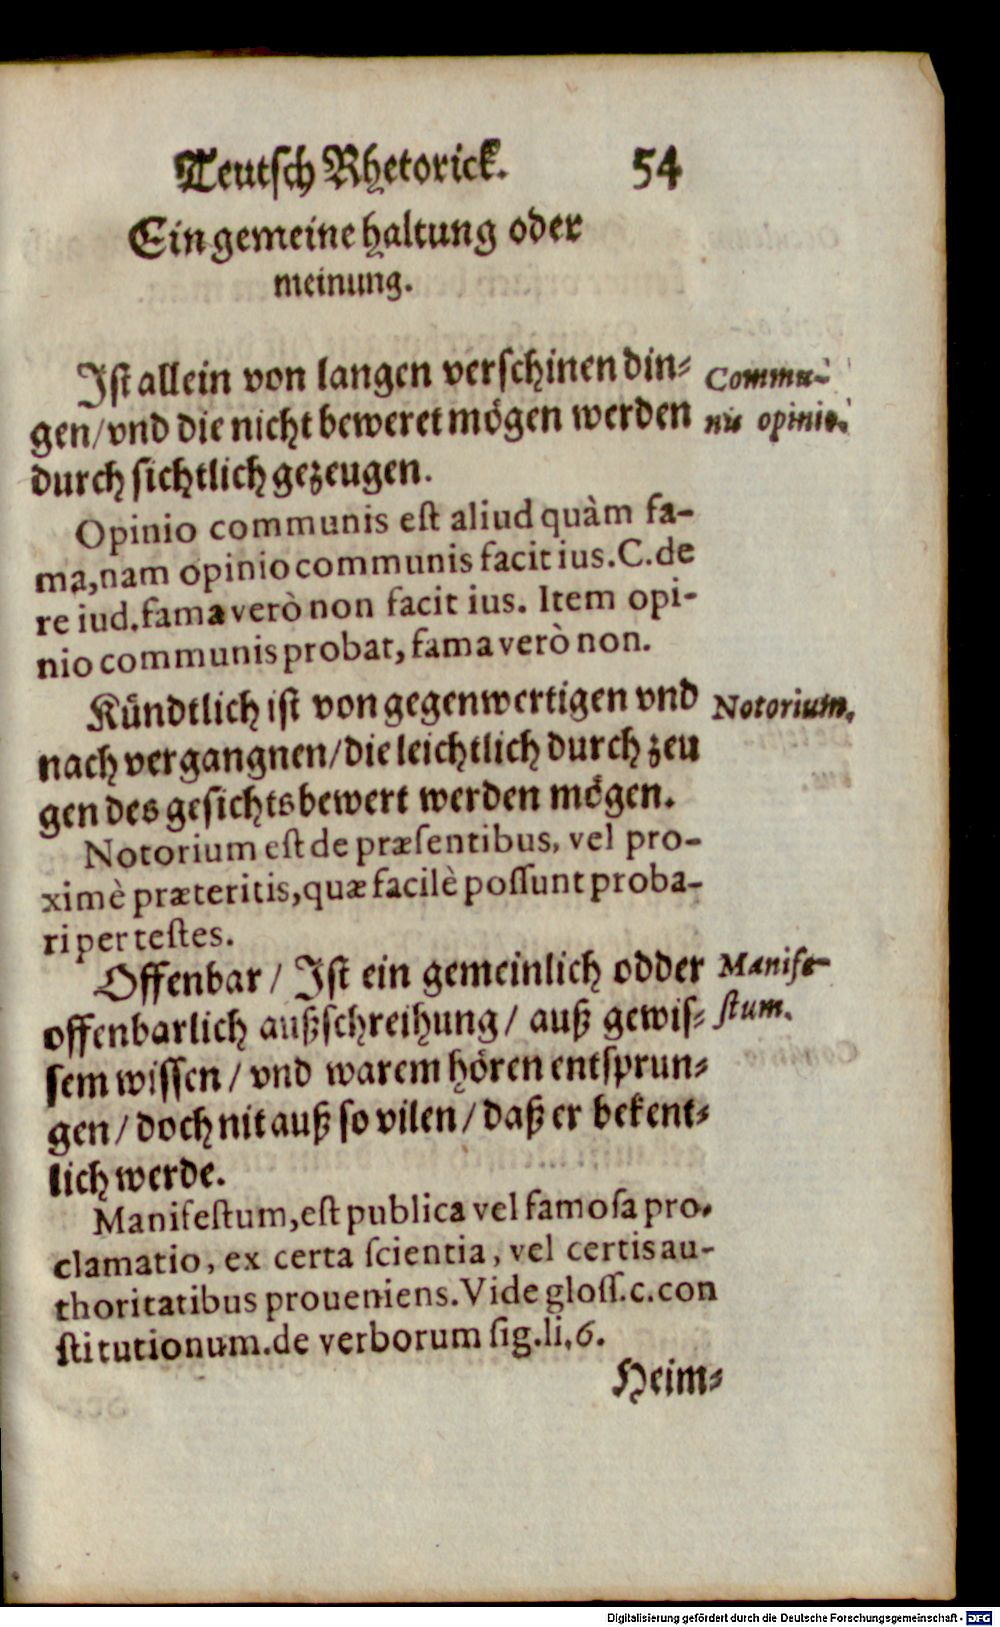 Teutſch Rhetorick. 54
Ein gemeine haltung oder
meinung.
Iſt allein von langen verſchinen din⸗
gen/vnd die nicht beweret mögen werden
durch ſichtlich gezeugen.
Commu-
nis opinio.
Opinio communis eſt aliud quàm fa-
ma,nam opinio communis facit ius.C.de
re iud.fama verò non facit ius. Item opi-
nio communis probat, fama verò non.
Kündtlich iſt von gegenwertigen vnd
nach vergangnen/die leichtlich durch zeu
gen des geſichts bewert werden mögen.
Notorium.
Notorium eſt de præſentibus, vel pro-
ximè præteritis,quæ facilè poſſunt proba-
ri per teſtes.
Offenbar / Iſt ein gemeinlich odder
offenbarlich außſchreihung / auß gewiſ⸗
ſem wiſſen / vnd warem hören entſprun⸗
gen / doch nit auß ſo vilen / daß er bekent⸗
lich werde.
Manife-
ſtum.
Manifeſtum,eſt publica vel famoſa pro-
clamatio, ex certa ſcientia, vel certis au-
thoritatibus proueniens.Vide gloſſ.c.con
ſtitutionum.de verborum ſig.li,6.
Heim⸗
Digitalisierung gefördert durch die Deutsche Forschungsgemeinschaft - DFG